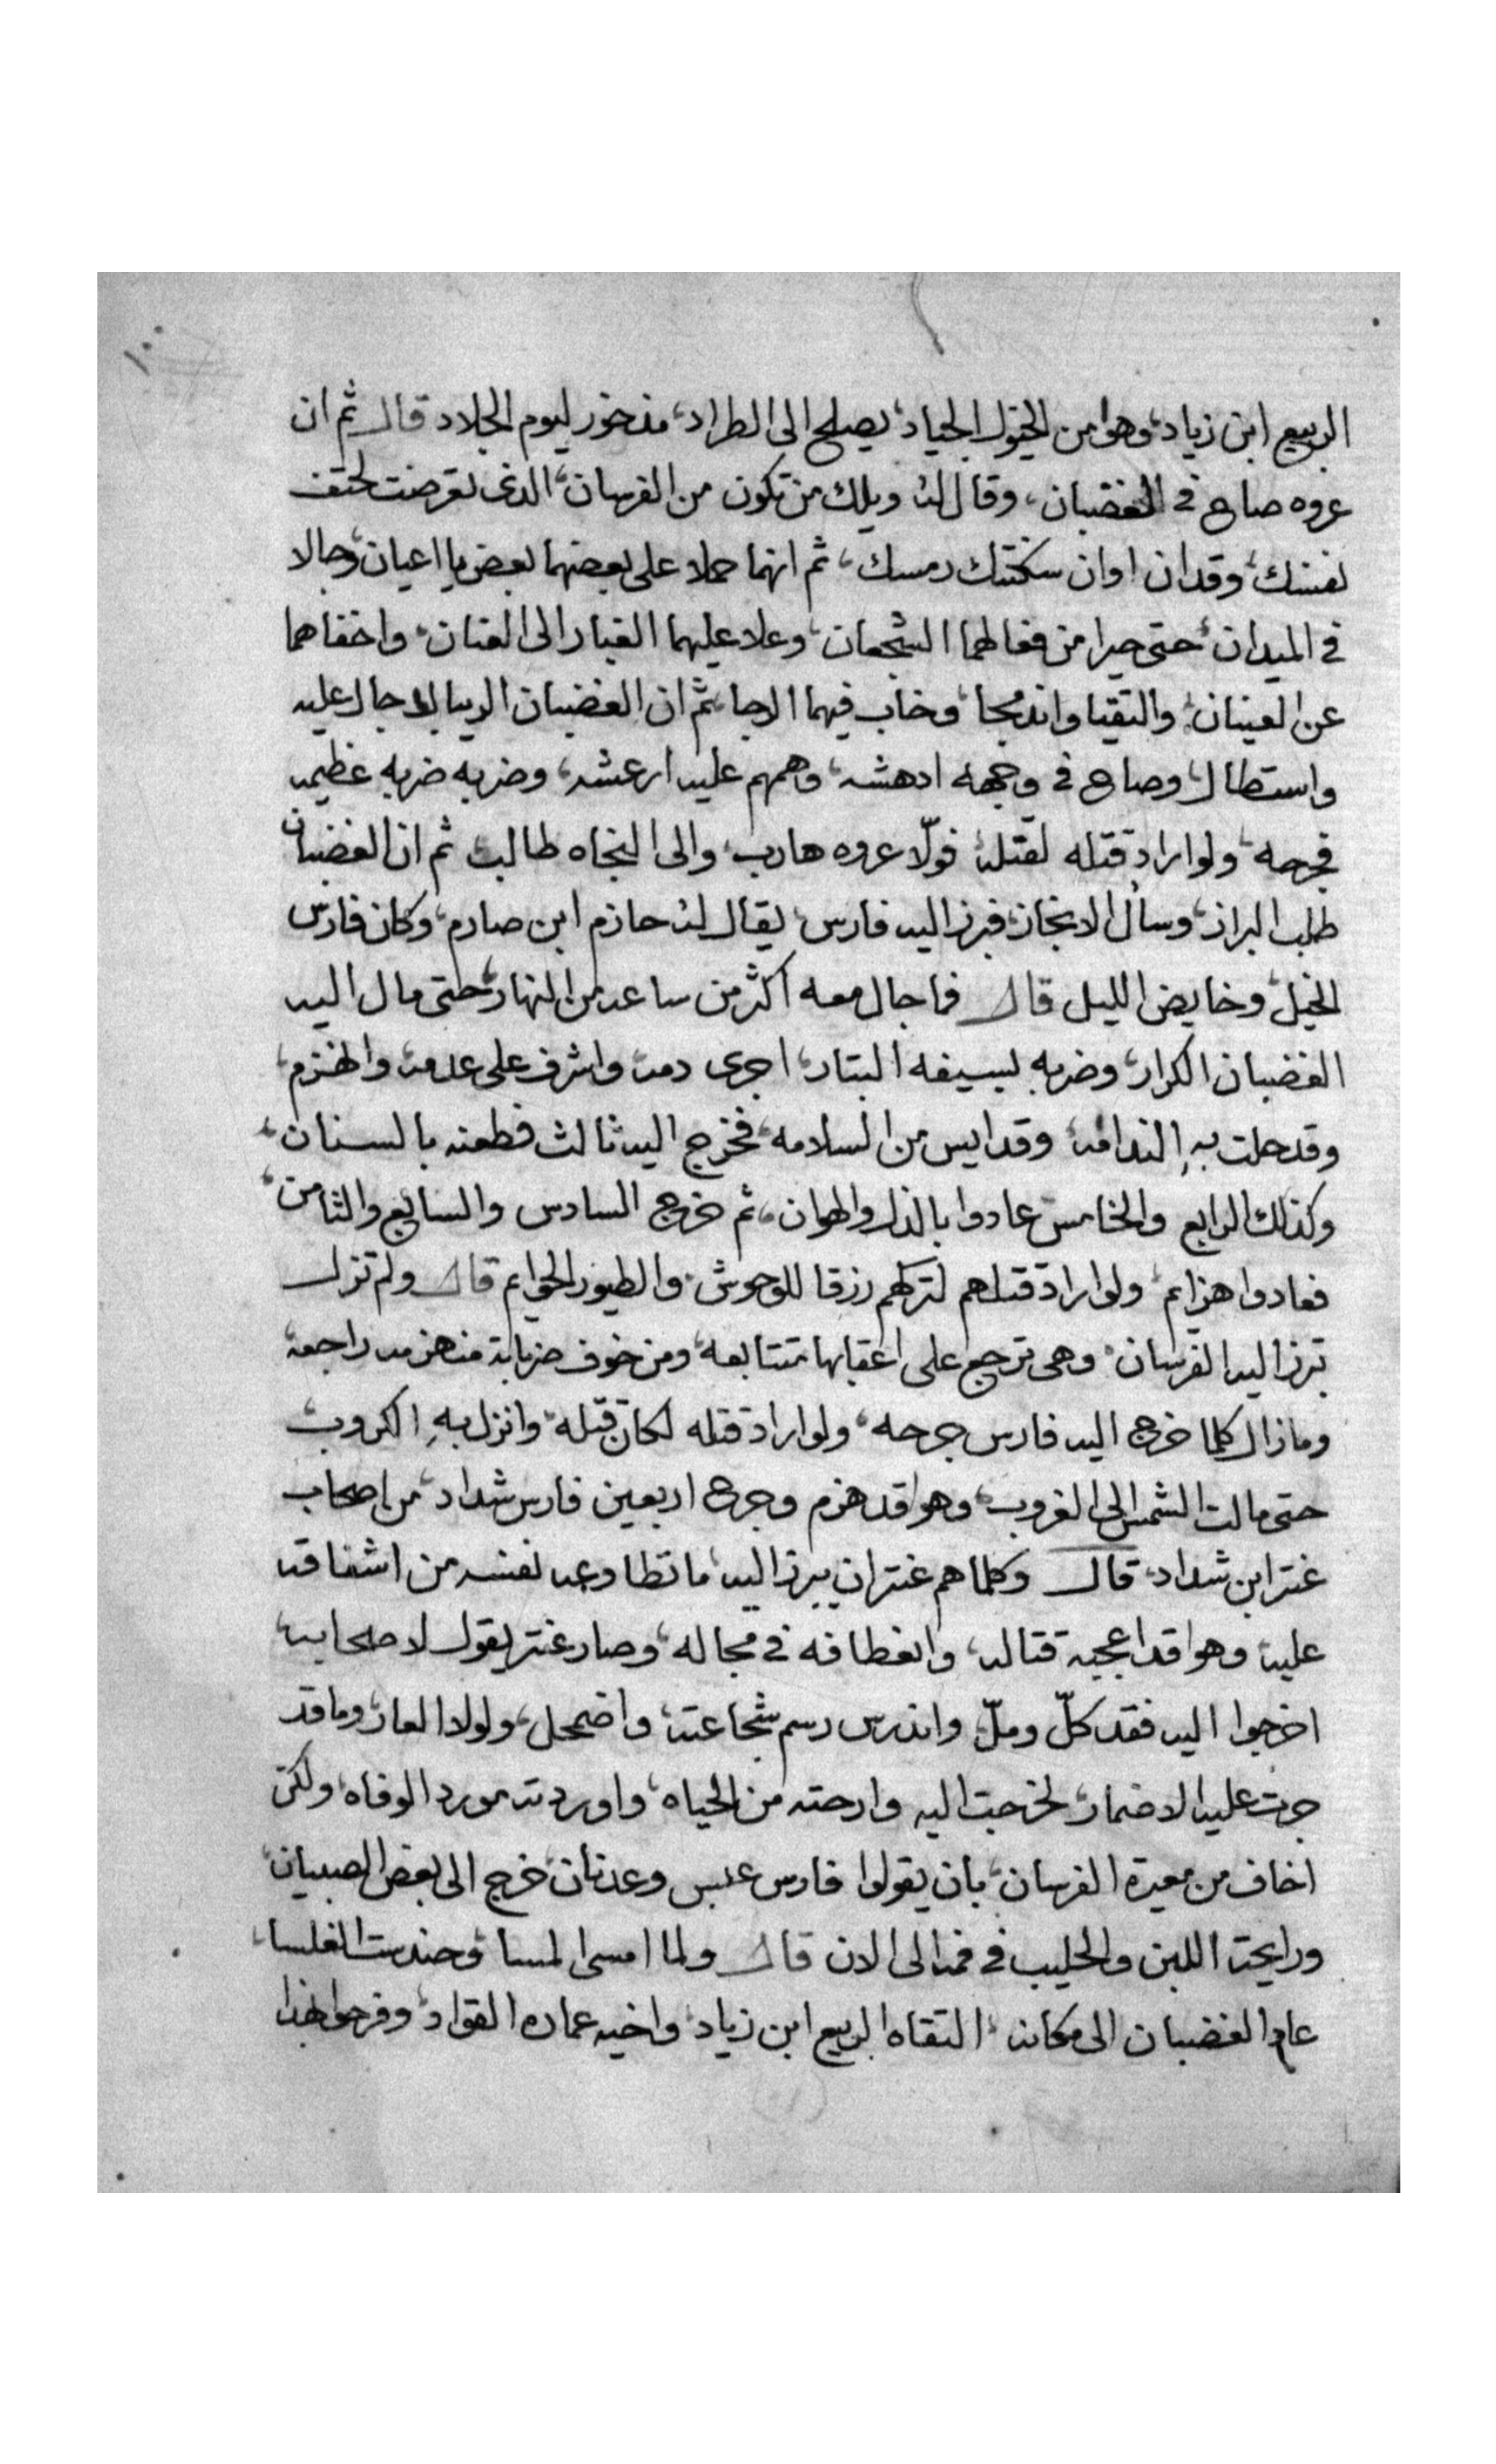 ١٠٠
الربيع ابن زياد، وهوا من الخيول الجياد، يصلح الى الطراد، مدخور ليوم الجلاد قال ثم ان
عروه صاح في الغضبان، وقال له ويلك من تكون من الفرسان، الذى تعرضت لحتف
نفسك، وقد ان اوان سكنتك رمسك، ثم انهما حملا على بعضهما بعض يا اعيان، وجالا
في الميدان، حتى حيرا من فعالهما الشجعان، وعلا عليهما الغبار الى العنان، واخفاهما
عن العينان، والتقيا واندمجا، وخاب فيهما الرجا، ثم ان الغضبان الريبال جال عليه
واستطال، وصاح في وجهه ادهشه، وهمهم عليه ارعشه، وضربه ضربه عظيمه
فجرحه، ولو اراد قتله لقتله، فولّا عروه هارب، والى النجاه طالب، ثم ان الغضبان
طلب البراز، وسأل الانجاز، فبرز اليه فارس، يقال له حازم ابن صارم، وكان فارس
الخيل، وخايض الليل قال فما جال معه اكثر من ساعه من النهار، حتى مال اليه
الغضبان الكرار، وضربه بسيفه البتار، اجرى دمه، واشرف على عدمه، وانهزم،
وقد حلت بهِ الندامه، وقد ايس من السلامه، فخرج اليه ثالث فطعنه بالسنان،
وكذلك الرابع والخامس عادوا بالذل والهوان، ثم خرج السادس والسابع والثامن،
فعادوا هزايم، ولو اراد قتلهم لتركهم رزقا للوحوش، والطيور الحوايم قال ولم تزل
تبرز اليه الفرسان، وهى ترجع على اعقابها متتابعه، ومن خوف ضرباته منهزمه راجعه،
وما زال كلما خرج اليه فارس جرحه، ولو اراد قتله لكان قتله، وانزل بهِ الكروب،
حتى مالت الشمس الى الغروب، وهوا قد هزم وجرح اربعين فارس شداد، من اصحاب
عنتر ابن شداد، قال وكلما هم عنتر ان يبرز اليه، ما تطاوعه نفسه من اشفاقه
عليه، وهوا قد اعجبه قتاله، وانعطافه في مجاله، وصار عنتر يقول لاصحابه،
اخرجوا اليه فقد كلّ وملّ، واندرس رسم شجاعته، واضمحل، ولولا العار، وما قد
جرت عليه الاضمار، لخرجت اليه وارحته من الحياه، واوردته مورد الوفاه، ولكن
اخاف من معيرة الفرسان، بان يقولوا فارس عبس وعدنان، خرج الى بعض الصبيان،
ورايحة اللبن والحليب في فمه الى الان قال ولما امسى المسا، وحندست الغلسا،
عاد الغضبان الى مكانه، التقاه الربيع ابن زياد، واخيه عماره القواد، وفرحوا بهذا